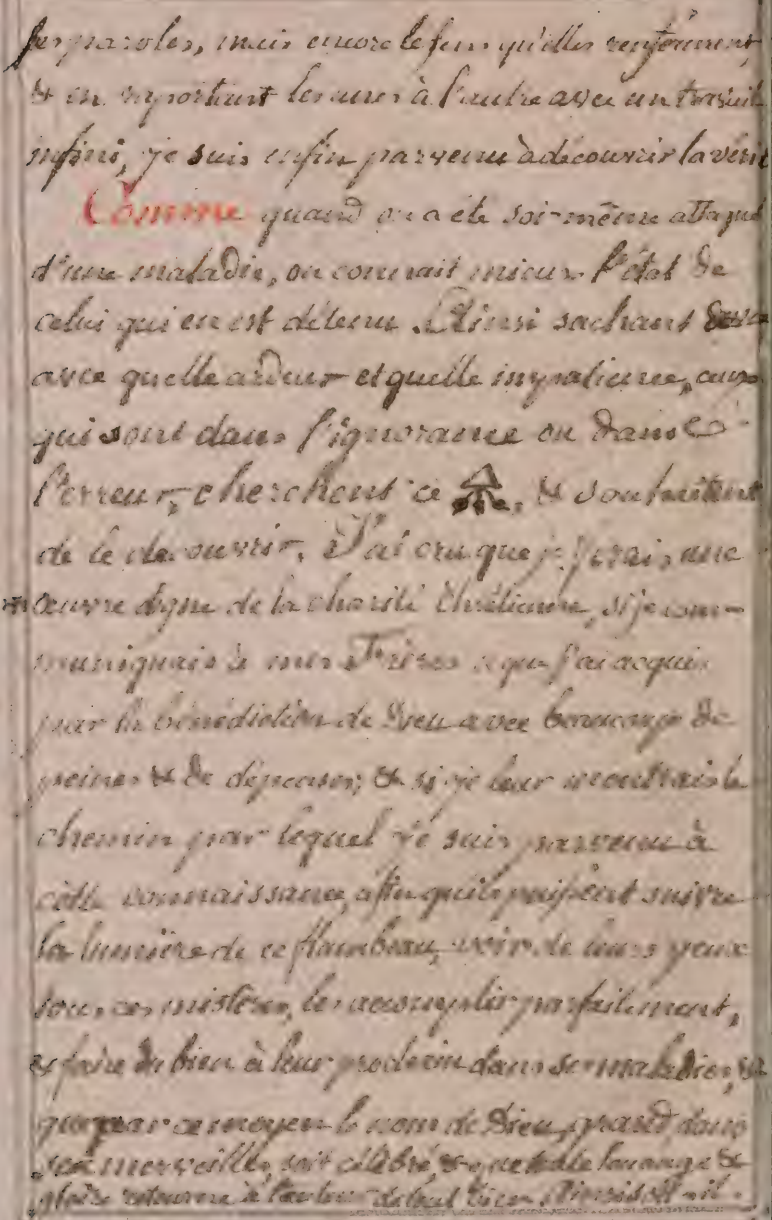 les paroles, mais encore le sens qu'elles renferment,
& en raportant les unes à l'autre avec un travail
infini, je suis enfin parvenu à découvrir la véri
Comme quand on a été soi-même attaqué
d'une maladie, on connait mieux l'état de
celui qui en est détenu. Ainsi sachant
avec quelle ardeur et quelle impatience, ceux
qui sont dans l'ignorance ou dans
l'erreur, cherchent ce & souhaitent
de le découvrir, J'ai cru que je ferais une
œuvre digne de la charité Chrétienne, si je com-
muniquais à mes Frères ce que j'ai acquis
par la bénédiction de Dieu avec beaucoup de
peines & de dépenses; & si je leur montrais le
chemin par lequel je suis parvenu à
cette connaissance, afin qu'ils puissent suivre
la lumière de ce flambeau, voir de leurs yeux
tous ces mistères, les accomplir parfaitement,
& faire du bien à leur prochain dans ses maladies, &
que par ce moyen le nom de Dieu, grand dans
ses merveilles, soit célébré, & que toute louange &
gloire retourne à l'auteur de tout bien. Ainsi soit-il.